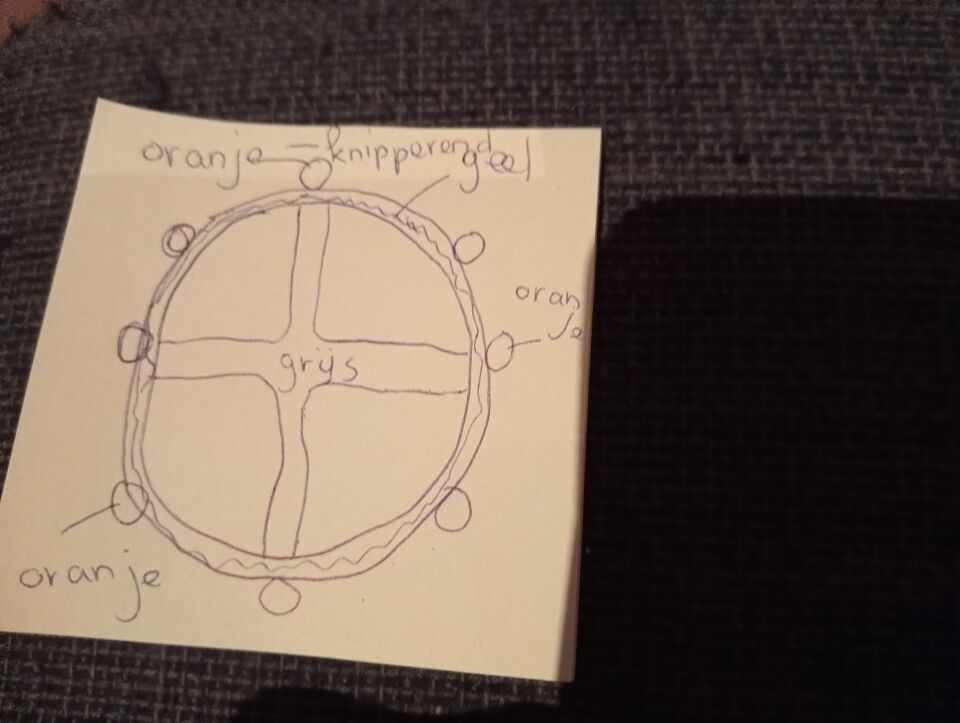 oranje - knipperend
geel
oran
je
grijs
oranje